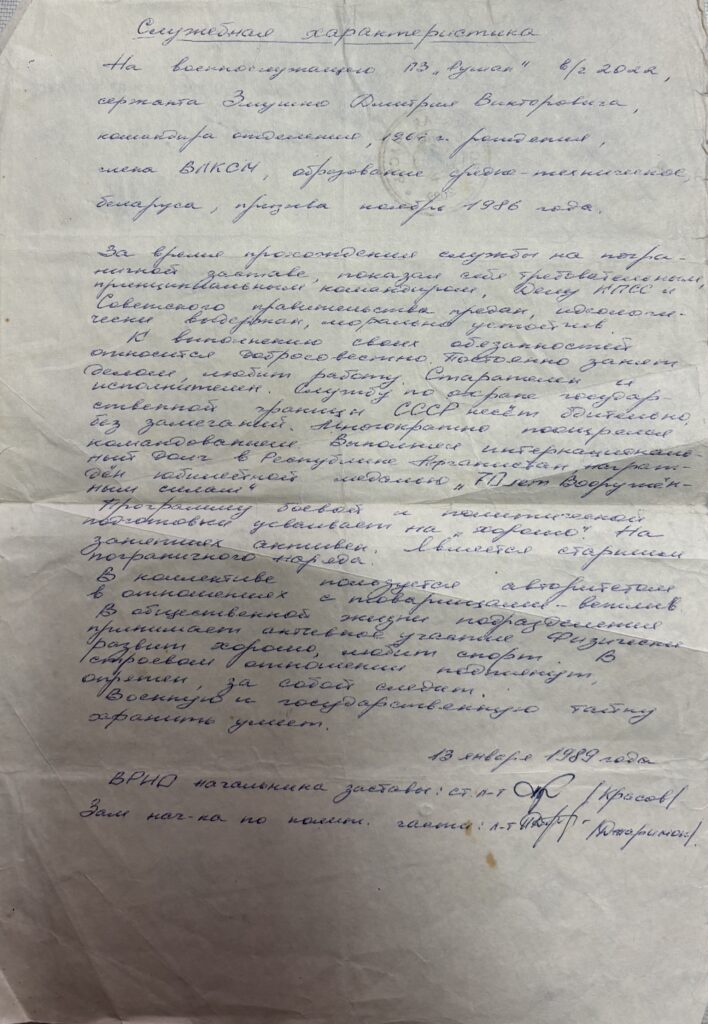 Служебная характеристика
На военнослужащего ПЗ в/ч 2022,
сержанта Змушко Дмитрия Викторовича,
командира отделения, 1967 г. рождения,
члена ВЛКСМ, образование средне-техническое,
беларуса, призыва ноябрь 1986 года.
За время прохождения службы на погра-
ничной заставе, показал себя требовательным,
принципиальным командиром, Делу КПСС и
Советского правительства предан, идеологи-
чески выдержан, морально устойчив.
К выполнению своих обязанностей
относится добросовестно. Постоянно занят
делом, любит работу. Старателен и
исполнителен. Службу по охране государ-
ственной границы СССР несёт бдительно,
без замечаний. Многократно поощрялся
командованием. Выполнял интернациональ-
ный долг в Республике Афганистан, награж-
дён юбилейной медалью „70 лет Вооружён-
ным силам"
Программу боевой и политической
подготовки усваивает на „хорошо". На
занятиях активен. Является старшим
пограничного наряда.
В коллективе пользуется авторитетом
в отношениях с товарищами – вежлив
В общественной жизни подразделения
принимает активное участие Физически
развит хорошо, любит спорт. В
строевом отношении подтянут,
опрятен, за собой следит.
Военную и государственную тайну
хранить умеет.
13 января 1989 года
ВРИО начальника заставы: ст. л-т /Красов/
Зам нач-ка по полит. части: л-т